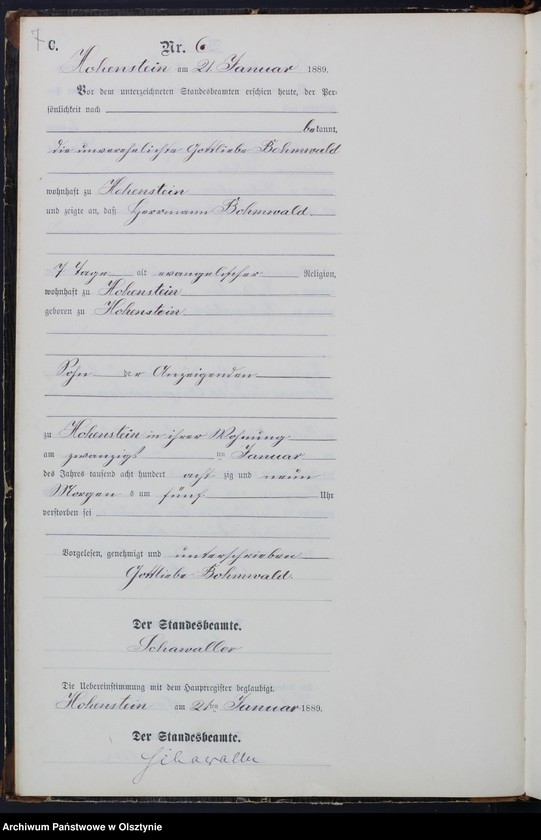 7
C.
Nr. 6
Hohenstein am 21. Januar 1889.
Vor dem unterzeichneten Standesbeamten erschien heute, der Per-
sönlichkeit nach
bekannt,
die unverehelichte Gottliebe Bohmwald
wohnhaft zu Hohenstein
und zeigte an, daß Herrmann Bohmwald
7 Tage alt evangelischer Religion,
wohnhaft zu Hohenstein
geboren zu Hohenstein
Sohn der Anzeigenden
zu Hohenstein in ihrer Wohnung
am zwanzigst ten Januar
des Jahres tausend acht hundert acht zig und neun
Morgens um fünf Uhr
verstorben sei
Vorgelesen, genehmigt und unterschrieben
Gottliebe Bohmwald.
Der Standesbeamte.
Schawaller
Die Uebereinstimmung mit dem Hauptregister beglaubigt.
Hohenstein am 21ten Januar 1889.
Der Standesbeamte.
Schawaller
Archiwum Państwowe w Olsztynie